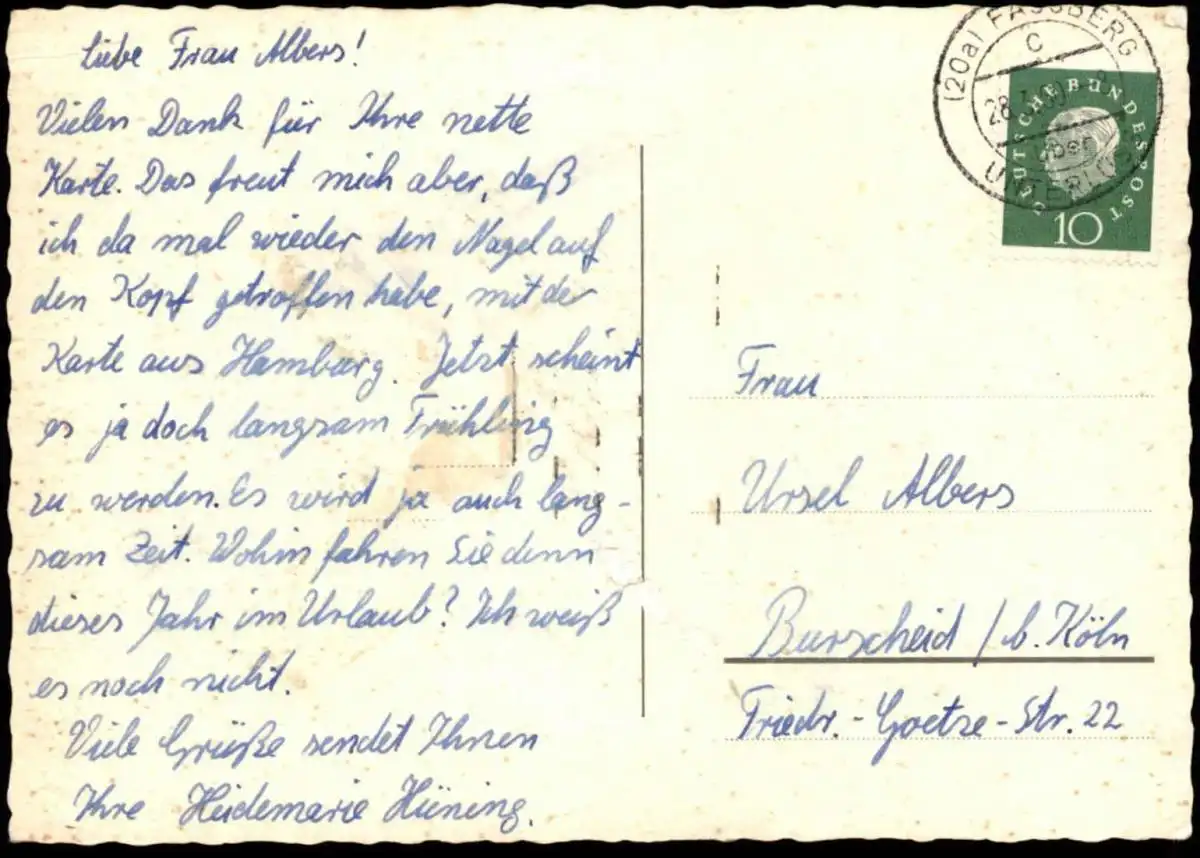 Liebe Frau Albers!
Vielen Dank für Ihre nette
Karte. Das freut mich aber, daß
ich da mal wieder den Nagel auf
den Kopf getroffen habe, mit der
Karte aus Hamburg. Jetzt scheint
es ja doch langsam Frühling
zu werden. Es wird ja auch lang-
sam Zeit. Wohin fahren Sie denn
dieses Jahr im Urlaub? Ich weiß
es noch nicht.
Viele Grüße sendet Ihnen
Ihre Heidemarie Hüning.
(20a) FASSBERG
C
28.3.60
über
DEUTSCHE BUNDESPOST
10
Frau
Ursel Albers
Burscheid / b. Köln
Friedr.-Goetze-Str. 22